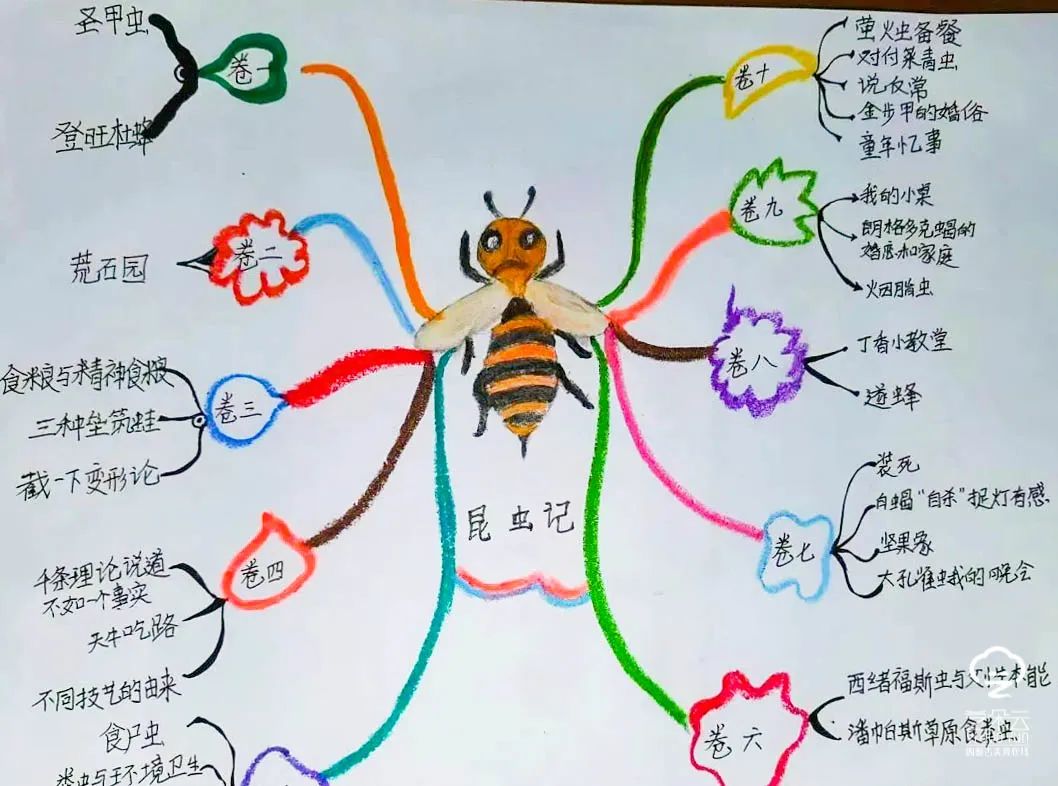 昆虫记
卷一
圣甲虫
登旺杜蜂
卷二
荒石园
卷三
食粮与精神食粮
三种垫筑蛙
截一下变形论
卷四
千条理论说道
不如一个事实
天牛吃路
不同技艺的由来
食尸虫
粪虫与环境卫生
卷六
西绪福斯虫与父性本能
潘帕斯草原食粪虫
卷七
装死
自蝎"自杀"捉灯有感
坚果象
大孔雀蛾的晚会
卷八
丁香小教堂
道蜂
卷九
我的小桌
朗格多克蝎的
婚恋和家庭
胭脂虫
卷十
萤火虫备餐
对付菜青虫
说反常
金步甲的婚俗
童年忆事
一朵云